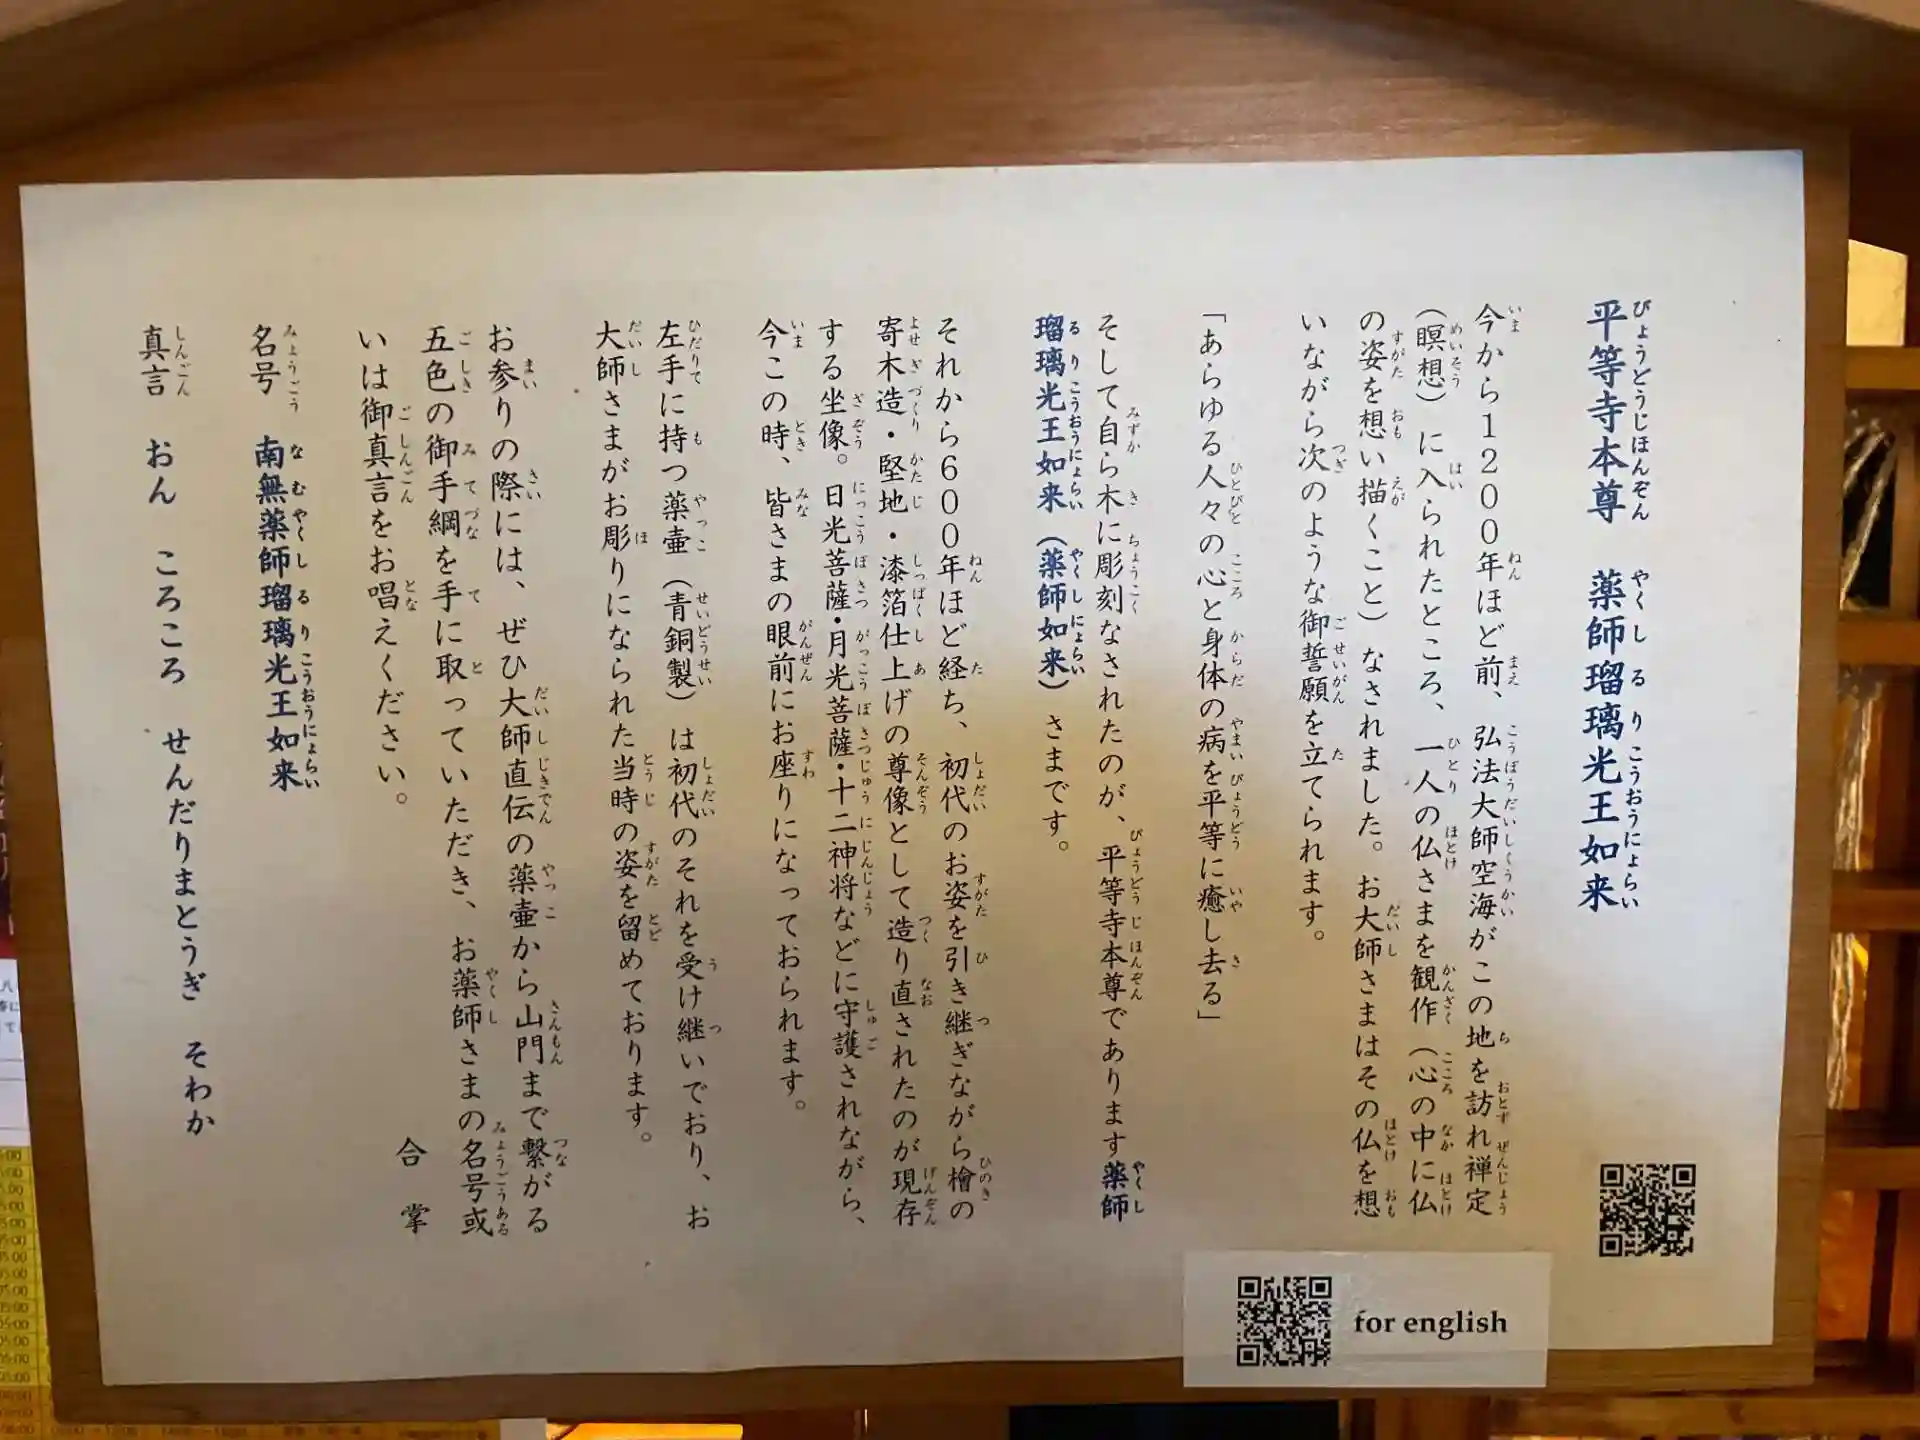 平等寺本尊　薬師瑠璃光王如来
今から1200年ほど前、弘法大師空海がこの地を訪れ禅定
（瞑想）に入られたところ、一人の仏さまを観作（心の中に仏
の姿を想い描くこと）なされました。お大師さまはその仏を想
いながら次のような御誓願を立てられます。
「あらゆる人々の心と身体の病を平等に癒し去る」
そして自ら木に彫刻なされたのが、平等寺本尊であります薬師
瑠璃光王如来（薬師如来）さまです。
それから600年ほど経ち、初代のお姿を引き継ぎながら檜の
寄木造・堅地・漆箔仕上げの尊像として造り直されたのが現存
する坐像。日光菩薩・月光菩薩・十二神将などに守護されながら、
今この時、皆さまの眼前にお座りになっておられます。
左手に持つ薬壷（青銅製）は初代のそれを受け継いでおり、お
大師さまがお彫りになられた当時の姿を留めております。
お参りの際には、ぜひ大師直伝の薬壷から山門まで繋がる
五色の御手綱を手に取っていただき、お薬師さまの名号或
いは御真言をお唱えください。
合　掌
名号　南無薬師瑠璃光王如来
真言　おん　ころころ　せんだりまとうぎ　そわか
for english